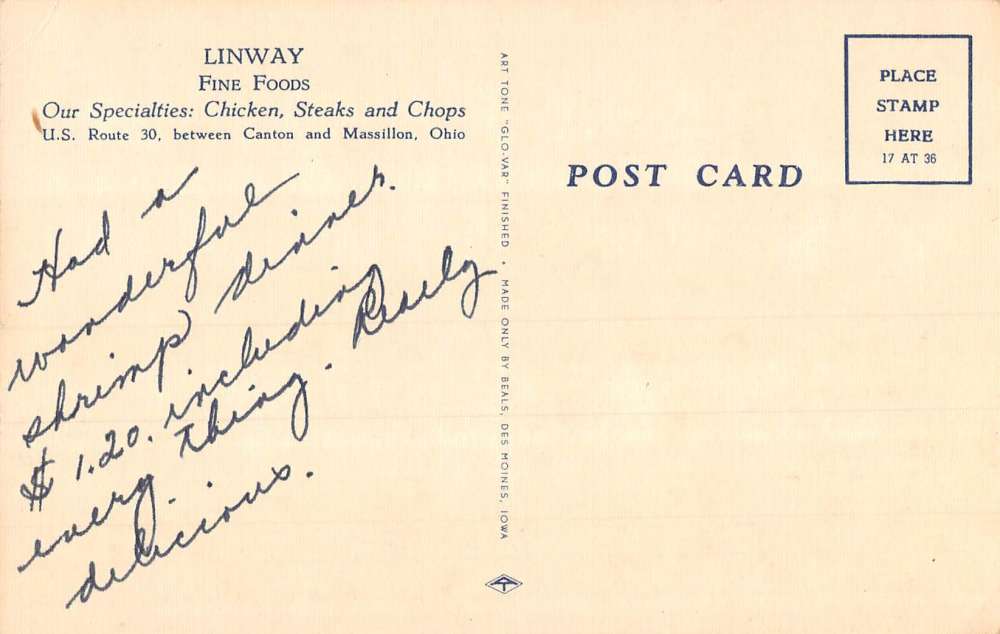 LINWAY
FINE FOODS
Our Specialties: Chicken, Steaks and Chops
U.S. Route 30, between Canton and Massillon, Ohio
Had a
wonderful
shrimp dinner.
$1.20. including
every. thing. Really
delicious.
ART TONE "GLO-VAR" FINISHED • MADE ONLY BY BEALS, DES MOINES, IOWA
POST CARD
PLACE
STAMP
HERE
17 AT 36